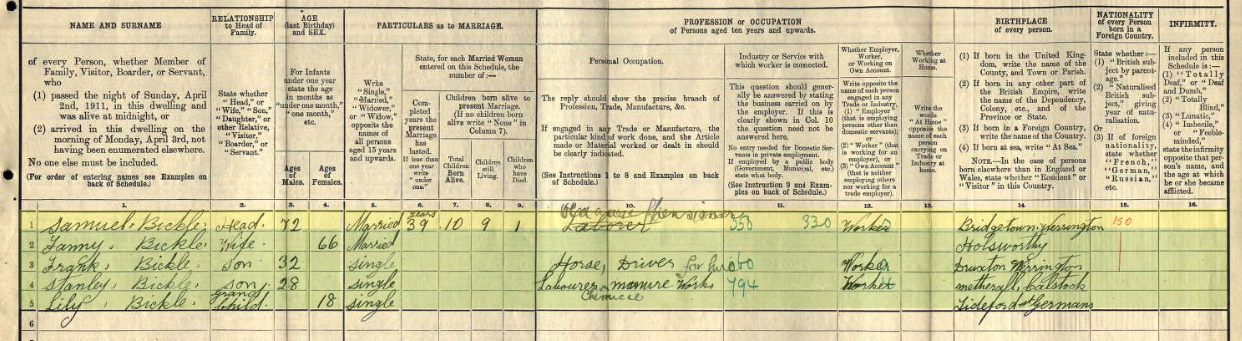 NAME AND SURNAME
of every Person, whether Member of
Family, Visitor, Boarder, or Servant,
who
(1) passed the night of Sunday, April
2nd, 1911, in this dwelling and
was alive at midnight, or
(2) arrived in this dwelling on the
morning of Monday, April 3rd, not
having been enumerated elsewhere.
No one else must be included.
(For order of entering names see Examples on
back of Schedule.)
RELATIONSHIP
to Head of
Family.
State whether
"Head," or
"Wife," "Son,"
"Daughter," or
other Relative,
"Visitor,"
"Boarder," or
"Servant."
AGE
(last Birthday)
and SEX.
For Infants
under one year
state the age
in months as
"under one month,"
"one month,"
etc.
Ages
of
Males.
Ages
of
Females.
PARTICULARS as to MARRIAGE.
Write
"Single,"
"Married,"
"Widower,"
or "Widow,"
opposite the
names of
all persons
aged 15 years
and upwards.
State, for each Married Woman
entered on this Schedule, the
number of:—
Com-
pleted
years the
present
Marriage
has
lasted.
If less than
one year
write
"under
one."
Children born alive to
present Marriage.
(If no children born
alive write "None" in
Column 7).
Total
Children
Born
Alive.
Children
still
Living.
Children
who
have
Died.
PROFESSION or OCCUPATION
of Persons aged ten years and upwards.
Personal Occupation.
The reply should show the precise branch of
Profession, Trade, Manufacture, &c.
If engaged in any Trade or Manufacture, the
particular kind of work done, and the Article
made or Material worked or dealt in should
be clearly indicated.
(See Instructions 1 to 8 and Examples on back
of Schedule.)
Industry or Service with
which worker is connected.
This question should gener-
ally be answered by stating
the business carried on by
the employer. If this is
clearly shown in Col. 10
the question need not be
answered here.
No entry needed for Domestic Ser-
vants in private employment.
If employed by a public body
(Government, Municipal, etc.)
state what body.
(See Instruction 9 and Exam-
ples on back of Schedule.)
Whether Employer,
Worker,
or Working on
Own Account.
Write opposite the
name of each person
engaged in any
Trade or Industry,
(1) "Employer"
(that is employing
persons other than
domestic servants),
or
(2) "Worker" (that
is working for an
employer), or
(3) "Own Account"
(that is neither
employing others
nor working for a
trade employer).
Whether
Working at
Home.
Write the
words
"At Home"
opposite the
name of each
person
carrying on
Trade or
Industry at
home.
BIRTHPLACE
of every person.
(1) If born in the United King-
dom, write the name of the
County, and Town or Parish.
(2) If born in any other part of
the British Empire, write
the name of the Dependency,
Colony, etc., and of the
Province or State.
(3) If born in a Foreign Country,
write the name of the Country.
(4) If born at sea, write "At Sea."
NOTE.—In the case of persons
born elsewhere than in England or
Wales, state whether "Resident" or
"Visitor" in this Country.
NATIONALITY
of every Person
born in a
Foreign Country.
State whether:—
(1) "British
subject by
parent-
age."
(2) "Naturalised
British
sub-
ject,"
giving
year of
natural-
isation.
Or
(3) If of foreign
nationality,
state whether
"French,"
"German,"
"Russian,"
etc.
INFIRMITY.
If any person
included in this
Schedule is:—
(1) "Totally
Deaf," or "Deaf
and Dumb,"
(2) "Totally
Blind,"
(3) "Lunatic,"
(4) "Imbecile,"
or "Feeble-
minded,"
state the infirmity
opposite that per-
son's name, and
the age at which
he or she became
afflicted.
1. 2. 3. 4. 5. 6. 7. 8. 9. 10. 11. 12. 13. 14. 15. 16.
Old age Pensioner
1 Samuel Bickle Head 72 Married 39 years 10 9 1 Laborer 350 330 Worker Bridgetown Werrington 150
2 Fanny Bickle Wife 66 Married Holsworthy
3 Frank Bickle Son 32 single Horse Driver Worker Druxton Werrington
4 Stanley Bickle Son 28 single Labourer manure Works 794 Worker metherall Calstock
Chimical
5 Lily Bickle grand Child 18 single Tideford St Germans
6